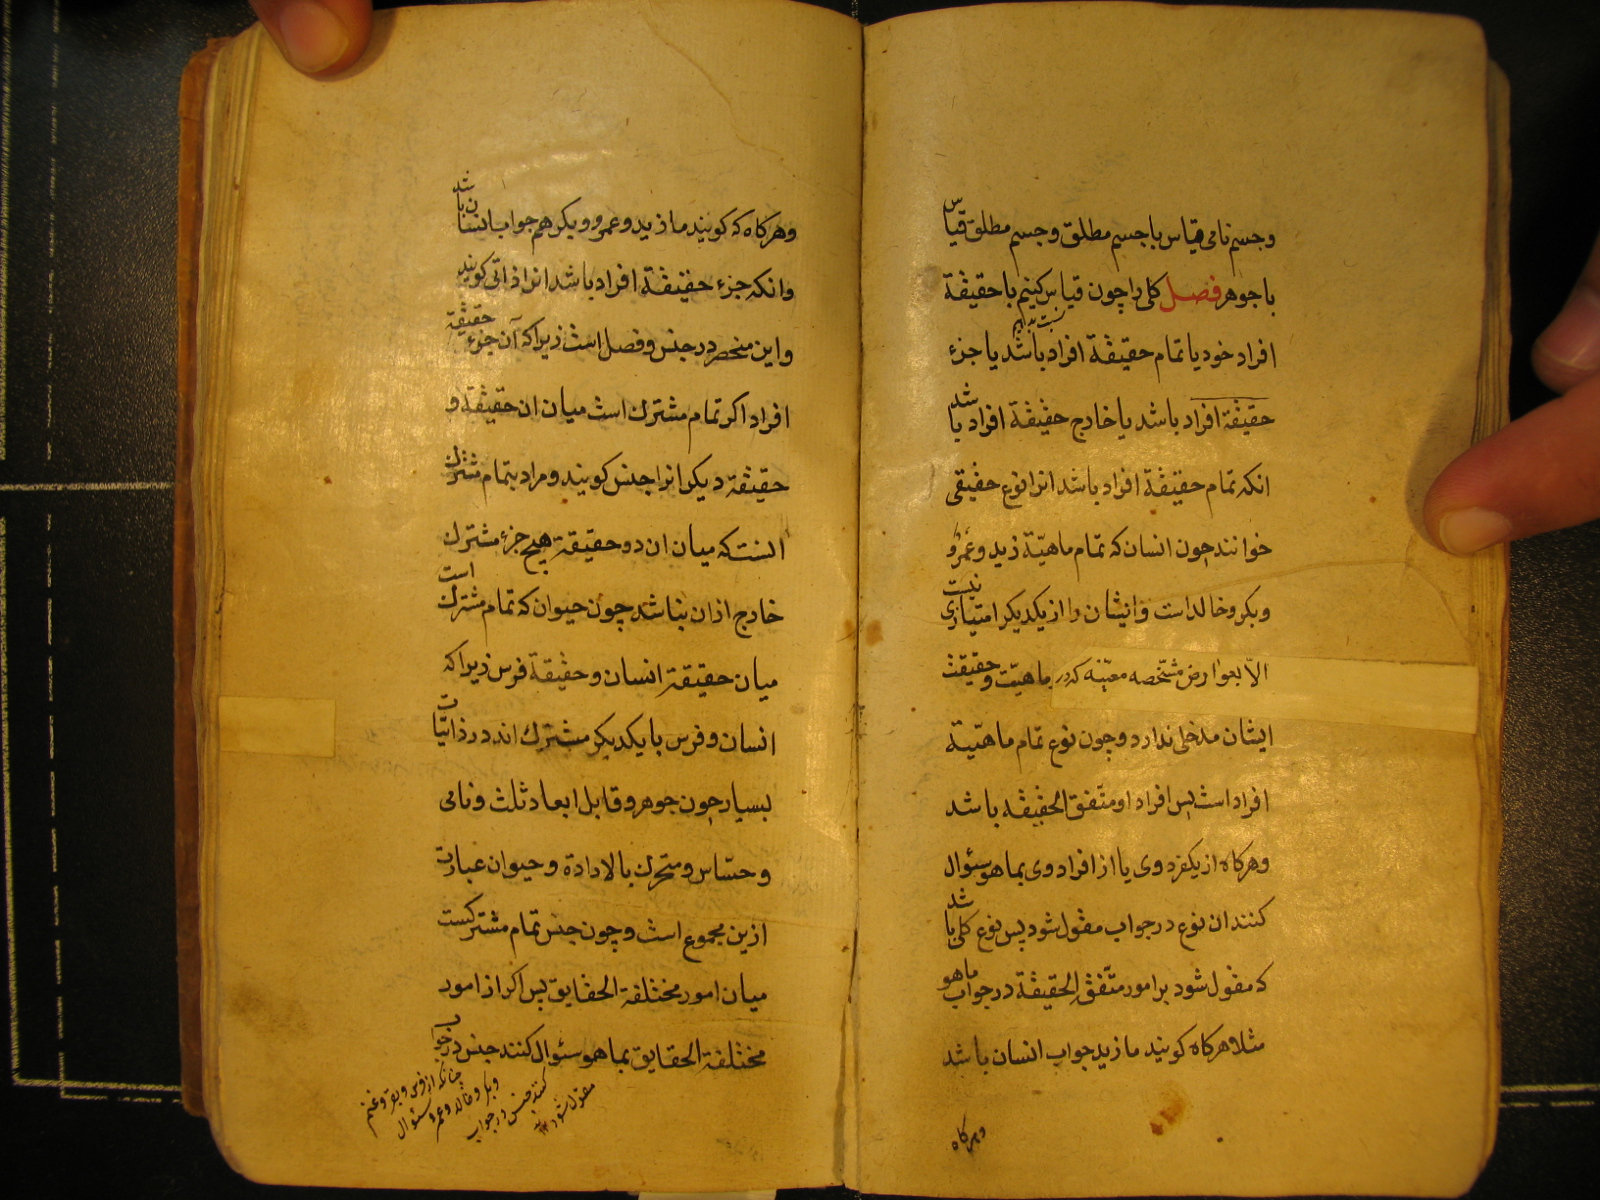 وجسم نامی قیاس با جسم مطلق وجسم مطلق قیاس
با جوهر فصل کلی را چون قیاس کنیم با حقیقة
افراد خود یا تمام حقیقة افراد باشد یا جزء
حقیقة افراد باشد یا خارج حقیقة افراد باشد
انکه تمام حقیقة افراد باشد انرا نوع حقیقی
خوانند چون انسان که تمام ماهیّة زید و عمرو
وبکر وخالد است وایشان را از یکدیکر امتیازی نیست
الّا بعوارض مشخّصه معیّنه که در ماهیّت وحقیقت
ایشان مدخلی ندارد وچون نوع تمام ماهیّة
افراد است پس افراد او متّفق الحقیقه باشد
وهرکاه از یکفرد وی یا از افراد وی بما هو سئوال
کنند ان نوع در جواب مقول شود پس نوع کلی باشد
که مقول شود بر امور متّفق الحقیقة در جواب ما هو
مثلا هرکاه کویند ما زید جواب انسان باشد
وهرکاه
وهرکاه که کویند ما زید وعمرو وبکر هم جواب انسان باشد
وانکه جزء حقیقة افراد باشد انرا ذاتی کویند
واین منحصر در جنس وفصل است زیرا که آن جزء حقیقة
افراد اکر تمام مشترك است میان ان حقیقة و
حقیقة دیکر انرا جنس کویند ومراد بتمام مشترك
انست که میان ان دو حقیقة هیچ جزء مشترك
خارج از ان نباشد چون حیوان که تمام مشترك است
میان حقیقة انسان وحقیقة فرس زیرا که
انسان وفرس با یکدیکر مشترك اند در ذاتیّات
بسیار چون جوهر وقابل ابعاد ثلث ونامی
وحسّاس ومتحرك بالارادة وحیوان عبارت
ازین مجموع است وچون جنس تمام مشترکست
میان امور مختلفة الحقایق پس اکر از امور
مختلفة الحقایق بما هو سئوال کنند جنس در جواب
چنانکه از فرس وبقر وغنم
وبکر وخالد وعمرو سئوال
کنند جنس در جواب
مقول شود